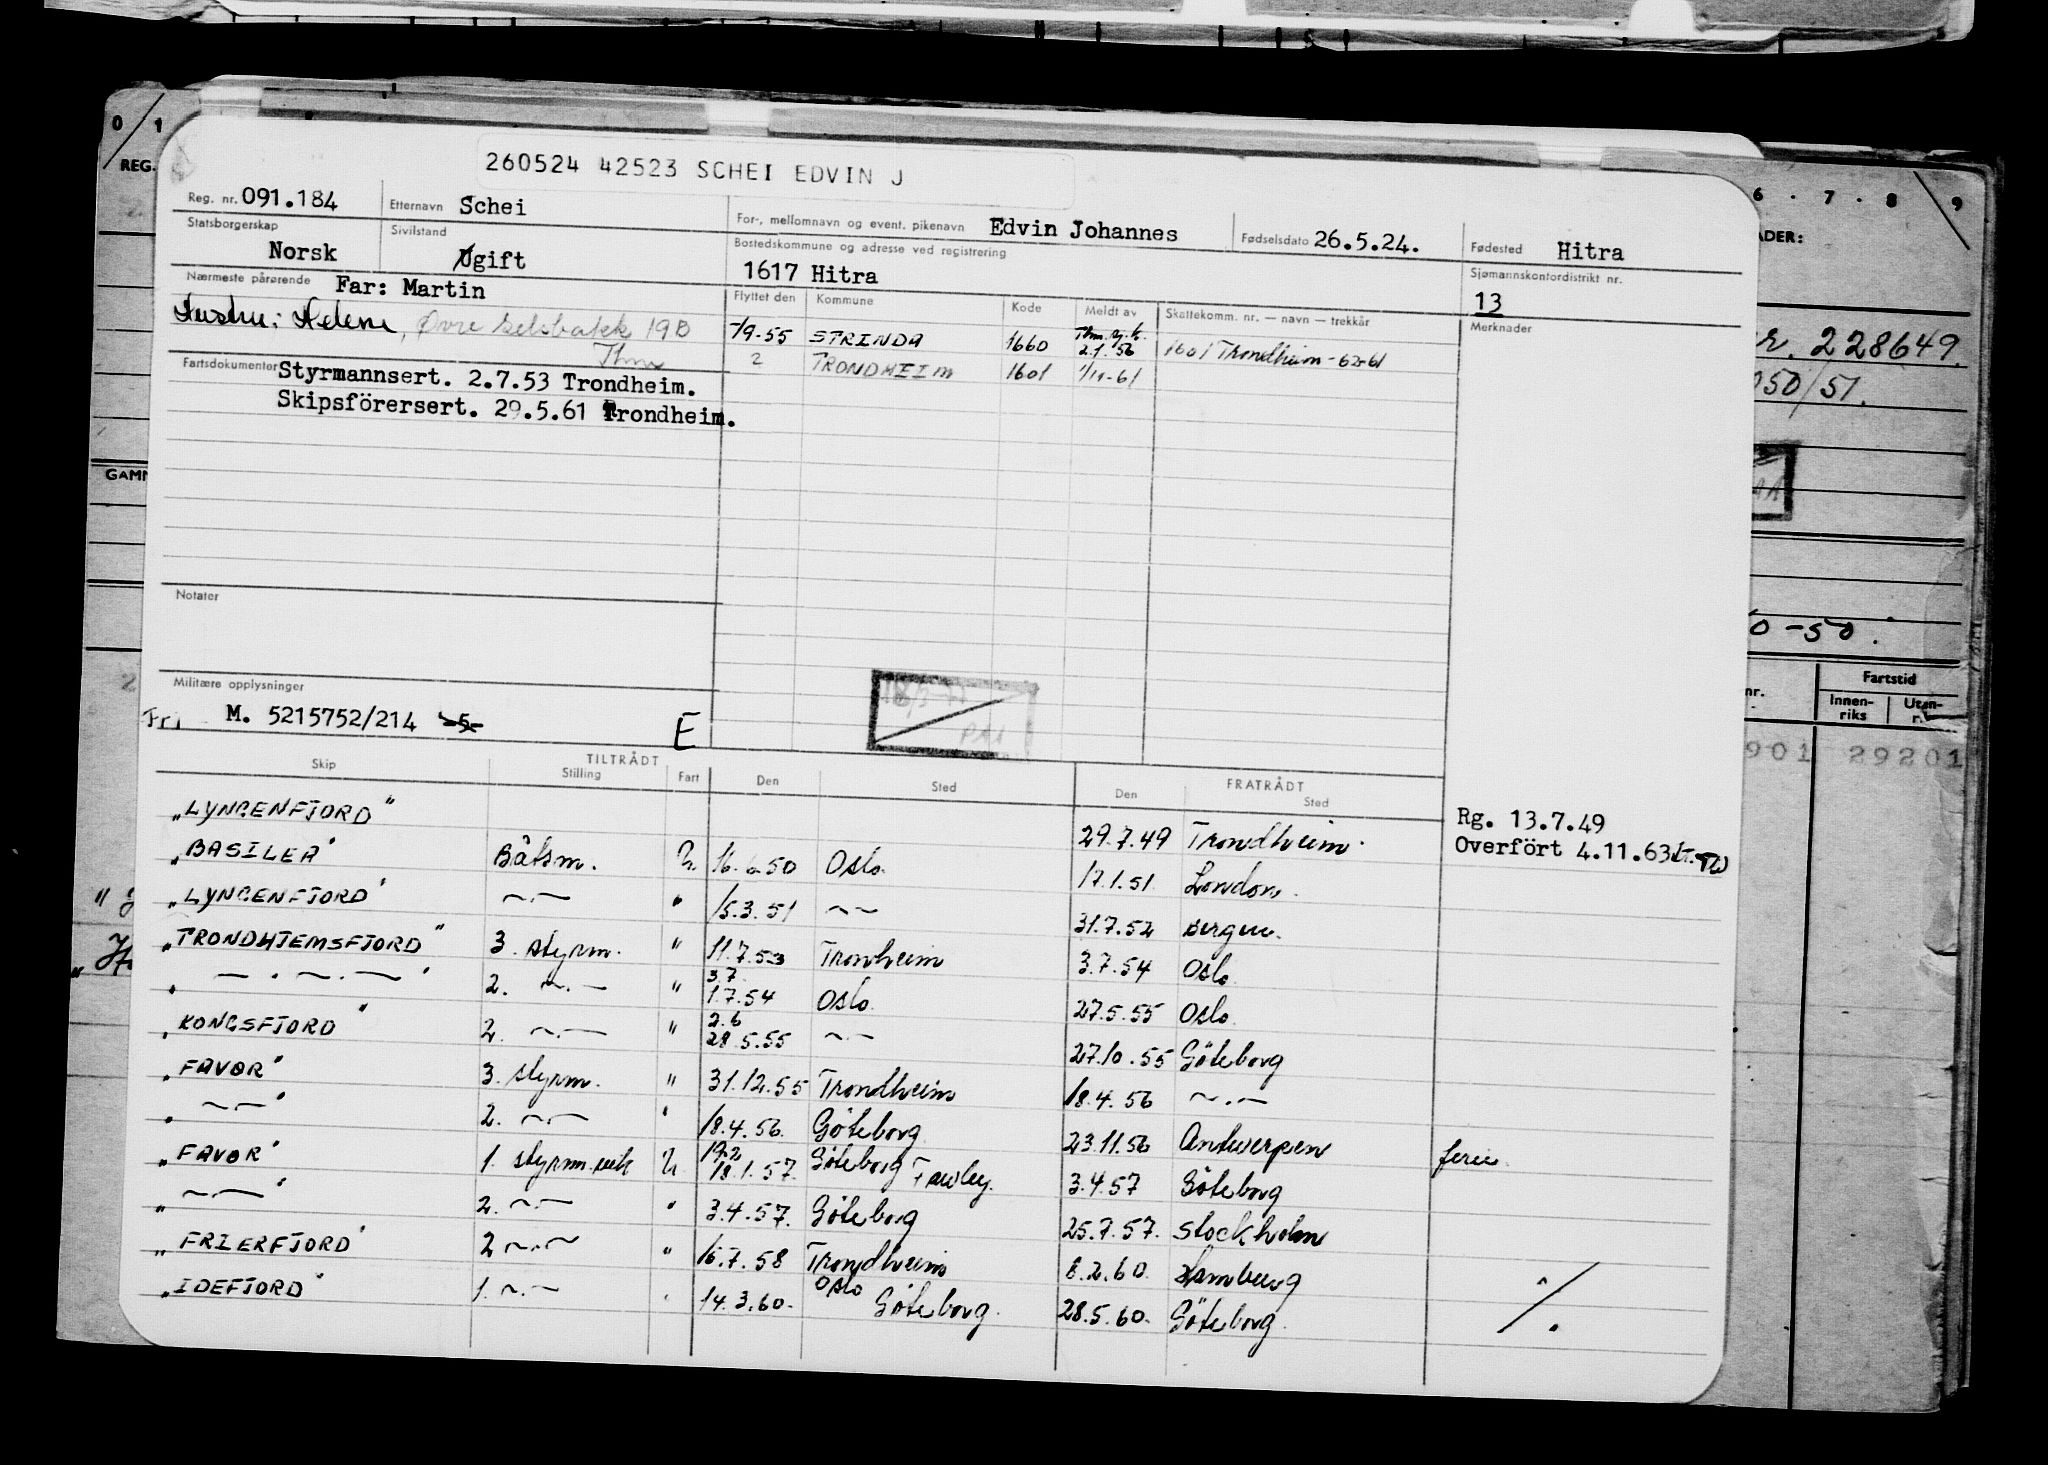 260524 42523 SCHEI EDVIN J
Reg. nr. 091.184 Etternavn Schei For-, mellomnavn og event. pikenavn Edvin Johannes Fødselsdato 26.5.24. Fødested Hitra
Statsborgerskap Norsk Sivilstand gift Bostedskommune og adresse ved registrering 1617 Hitra Sjømannskontordistrikt nr. 13
Nærmeste pårørende Far: Martin Flyttet den Kommune Kode Meldt av Skattekomm. nr. — navn — trekkår Merknader
Hustru: Helene, Øvre 19B
Thm
-/9-55 STRINDA 1660 2.1.56 1601 Trondheim - 62-61
2 TRONDHEIM 1601 1/11-61
Fartsdokumenter Styrmannsert. 2.7.53 Trondheim.
Skipsförersert. 29.5.61 Trondheim.
Notater
Militære opplysninger
Fri M. 5215752/214 -5- E
Skip TILTRÅDT Stilling Fart Den Sted FRATRÅDT Den Sted
"LYNGENFJORD" 29.7.49 Trondheim. Rg. 13.7.49
"BASILEA" Båtsm. U. 16.6.50 Oslo. 17.1.51. London. Overfört 4.11.63
"LYNGENFJORD" —.— " 15.3.51 —— 31.7.52 Bergen.
"TRONDHJEMSFJORD" 3. styrm. " 11.7.53 Tronheim 3.7.54 Oslo.
" —.—.— " 2. —.— " 3.7. 1.7.54 Oslo. 27.5.55 Oslo.
"KONGSFJORD" 2. —.— " 2.6 28.5.55 —.— 27.10.55 Göteborg
"FAVOR" 3. styrm. " 31.12.55 Trondheim 18.4.56 —.—
" —.— " 2. —.— " 18.4.56. Göteborg 23.11.56 Antwerpen ferie.
"FAVOR" 1. styrm. vik U. 19.2 18.1.57. Göteborg Fawley. 3.4.57 Göteborg
" —.— " 2. —.— " 3.4.57. Göteborg 25.7.57. Stockholm
"FRIERFJORD" 2 —.— " 16.7.58 Trondheim 8.2.60. Hamburg
"IDEFJORD" 1. —.— " 14.3.60. Oslo Göteborg. 28.5.60. Göteborg.
0 1
REG.
GAMM
6 . 7 . 8 9
ADER:
228649
50/51.
0-50.
nr. Fartstid
Innen-riks Uten-r.
901 29201